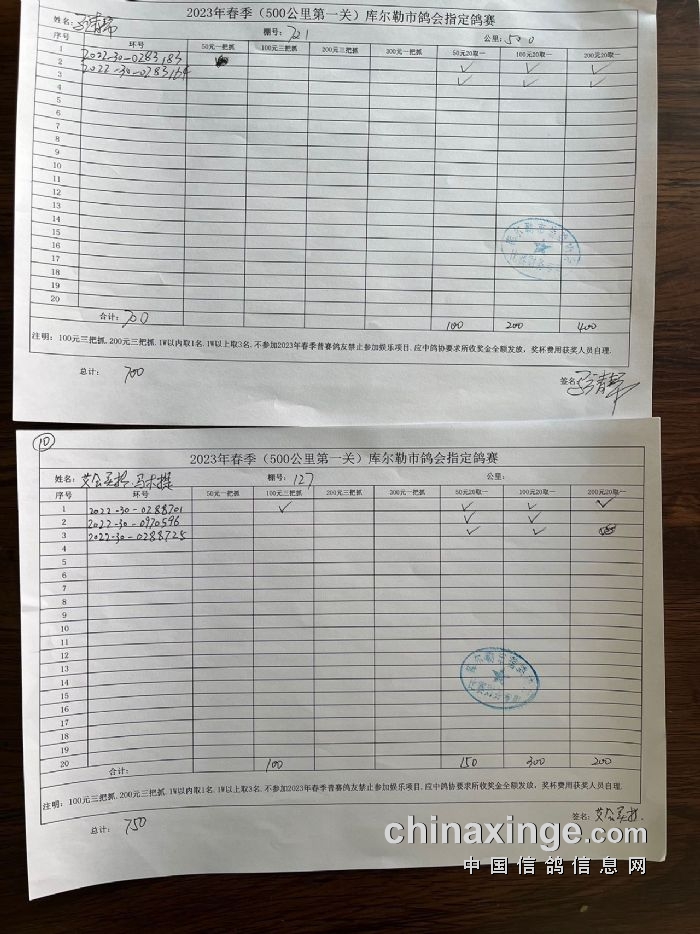 2023年春季（500公里第一关）库尔勒市鸽会指定鸽赛
姓名: 棚号: 721 公里: 500
序号 环号 50元一把抓 100元三把抓 200元三把抓 300元一把抓 50元20取一 100元20取一 200元20取一
1 2022-30-0283183 ✓ ✓ ✓
2 2022-30-0283164 ✓ ✓ ✓
3
4
5
6
7
8
9
10
11
12
13
14
15
16
17
18
19
20
合计: 700 100 200 400
注明: 100元三把抓.200元三把抓.1W以内取1名.1W以上取3名.不参加2023年春季普赛鸽友禁止参加娱乐项目.应中鸽协要求所收奖金全额发放，奖杯费用获奖人员自理.
总计: 700 签名:
10
2023年春季（500公里第一关）库尔勒市鸽会指定鸽赛
姓名: 棚号: 127 公里:
序号 环号 50元一把抓 100元三把抓 200元三把抓 300元一把抓 50元20取一 100元20取一 200元20取一
1 2022-30-0288701 ✓ ✓ ✓ ✓
2 2022-30-0970596 ✓ ✓
3 2022-30-0288725 ✓ ✓
4
5
6
7
8
9
10
11
12
13
14
15
16
17
18
19
20
合计: 100 150 300 200
注明: 100元三把抓.200元三把抓.1W以内取1名.1W以上取3名.不参加2023年春季普赛鸽友禁止参加娱乐项目.应中鸽协要求所收奖金全额发放，奖杯费用获奖人员自理.
总计: 750 签名:
chinaxinge.com
中国信鸽信息网